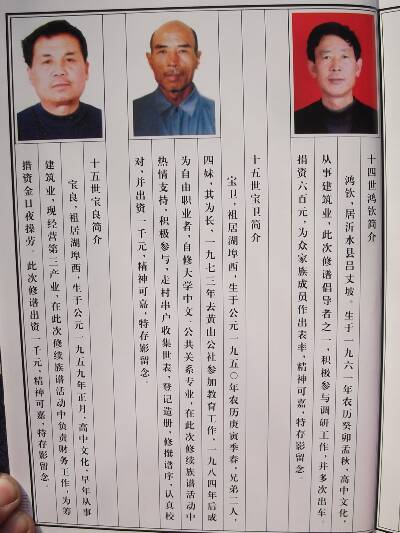 十四世鸿钦简介
鸿钦，居沂水县吕丈坡。生于一九六一年农历癸卯孟秋，高中文化，
从事建筑业，此次修谱倡导者之一，积极参与调研工作，并多次出车。
捐资六百元，为众家族成员作出表率，精神可嘉，特存影留念。
十五世宝卫简介
宝卫，祖居湖埠西，生于公元一九五〇年农历庚寅季春，兄弟二人，
四妹，其为长，一九七三年去黄山公社参加教育工作，一九八四年后成
为自由职业者，自修大学中文、公共关系专业，在此次修续族谱活动中
热情支持，积极参与，走村串户收集世表，登记造册，修撰谱序，认真校
对，并出资一千元，精神可嘉，特存影留念。
十五世宝良简介
宝良，祖居湖埠西，生于公元一九五九年正月，高中文化，早年从事
建筑业，现经营第三产业，在此次修续族谱活动中负责财务工作，为筹
措资金日夜操劳。此次修谱出资一千元，精神可嘉，特存影留念。